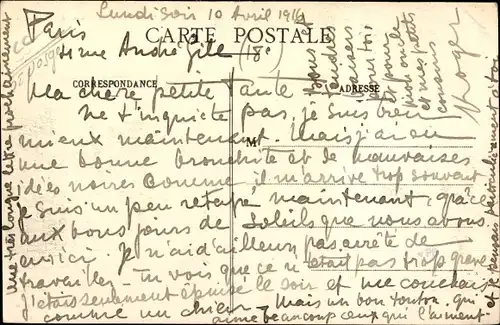 Lundi soir 10 Avril 1916
Paris
11 rue André Gill (18e)
CARTE POSTALE
CORRESPONDANCE
ADRESSE
Ma chère petite Tante
Ne t'inquiète pas, je suis bien
mieux maintenant. Mais j'ai eu
M
une bonne bronchite et de mauvaises
idées noires comme il m'arrive trop souvent
je suis un peu retapé maintenant, grâce
aux bons jours de soleils que nous avons
ici. Je n'ai d'ailleurs pas arrêté de
travailler. Tu vois que ce n'était pas trop grave
j'étais seulement épuisé le soir et me couchais
comme un chien. Mais un bon tonton. qui
aime beaucoup ceux qui l'aiment
et pense particulièrement à toi
Bons
tendres
baisers
pour toi
et pour
mon oncle
et mes petits
cousins
Roger
Une très longue lettre prochainement